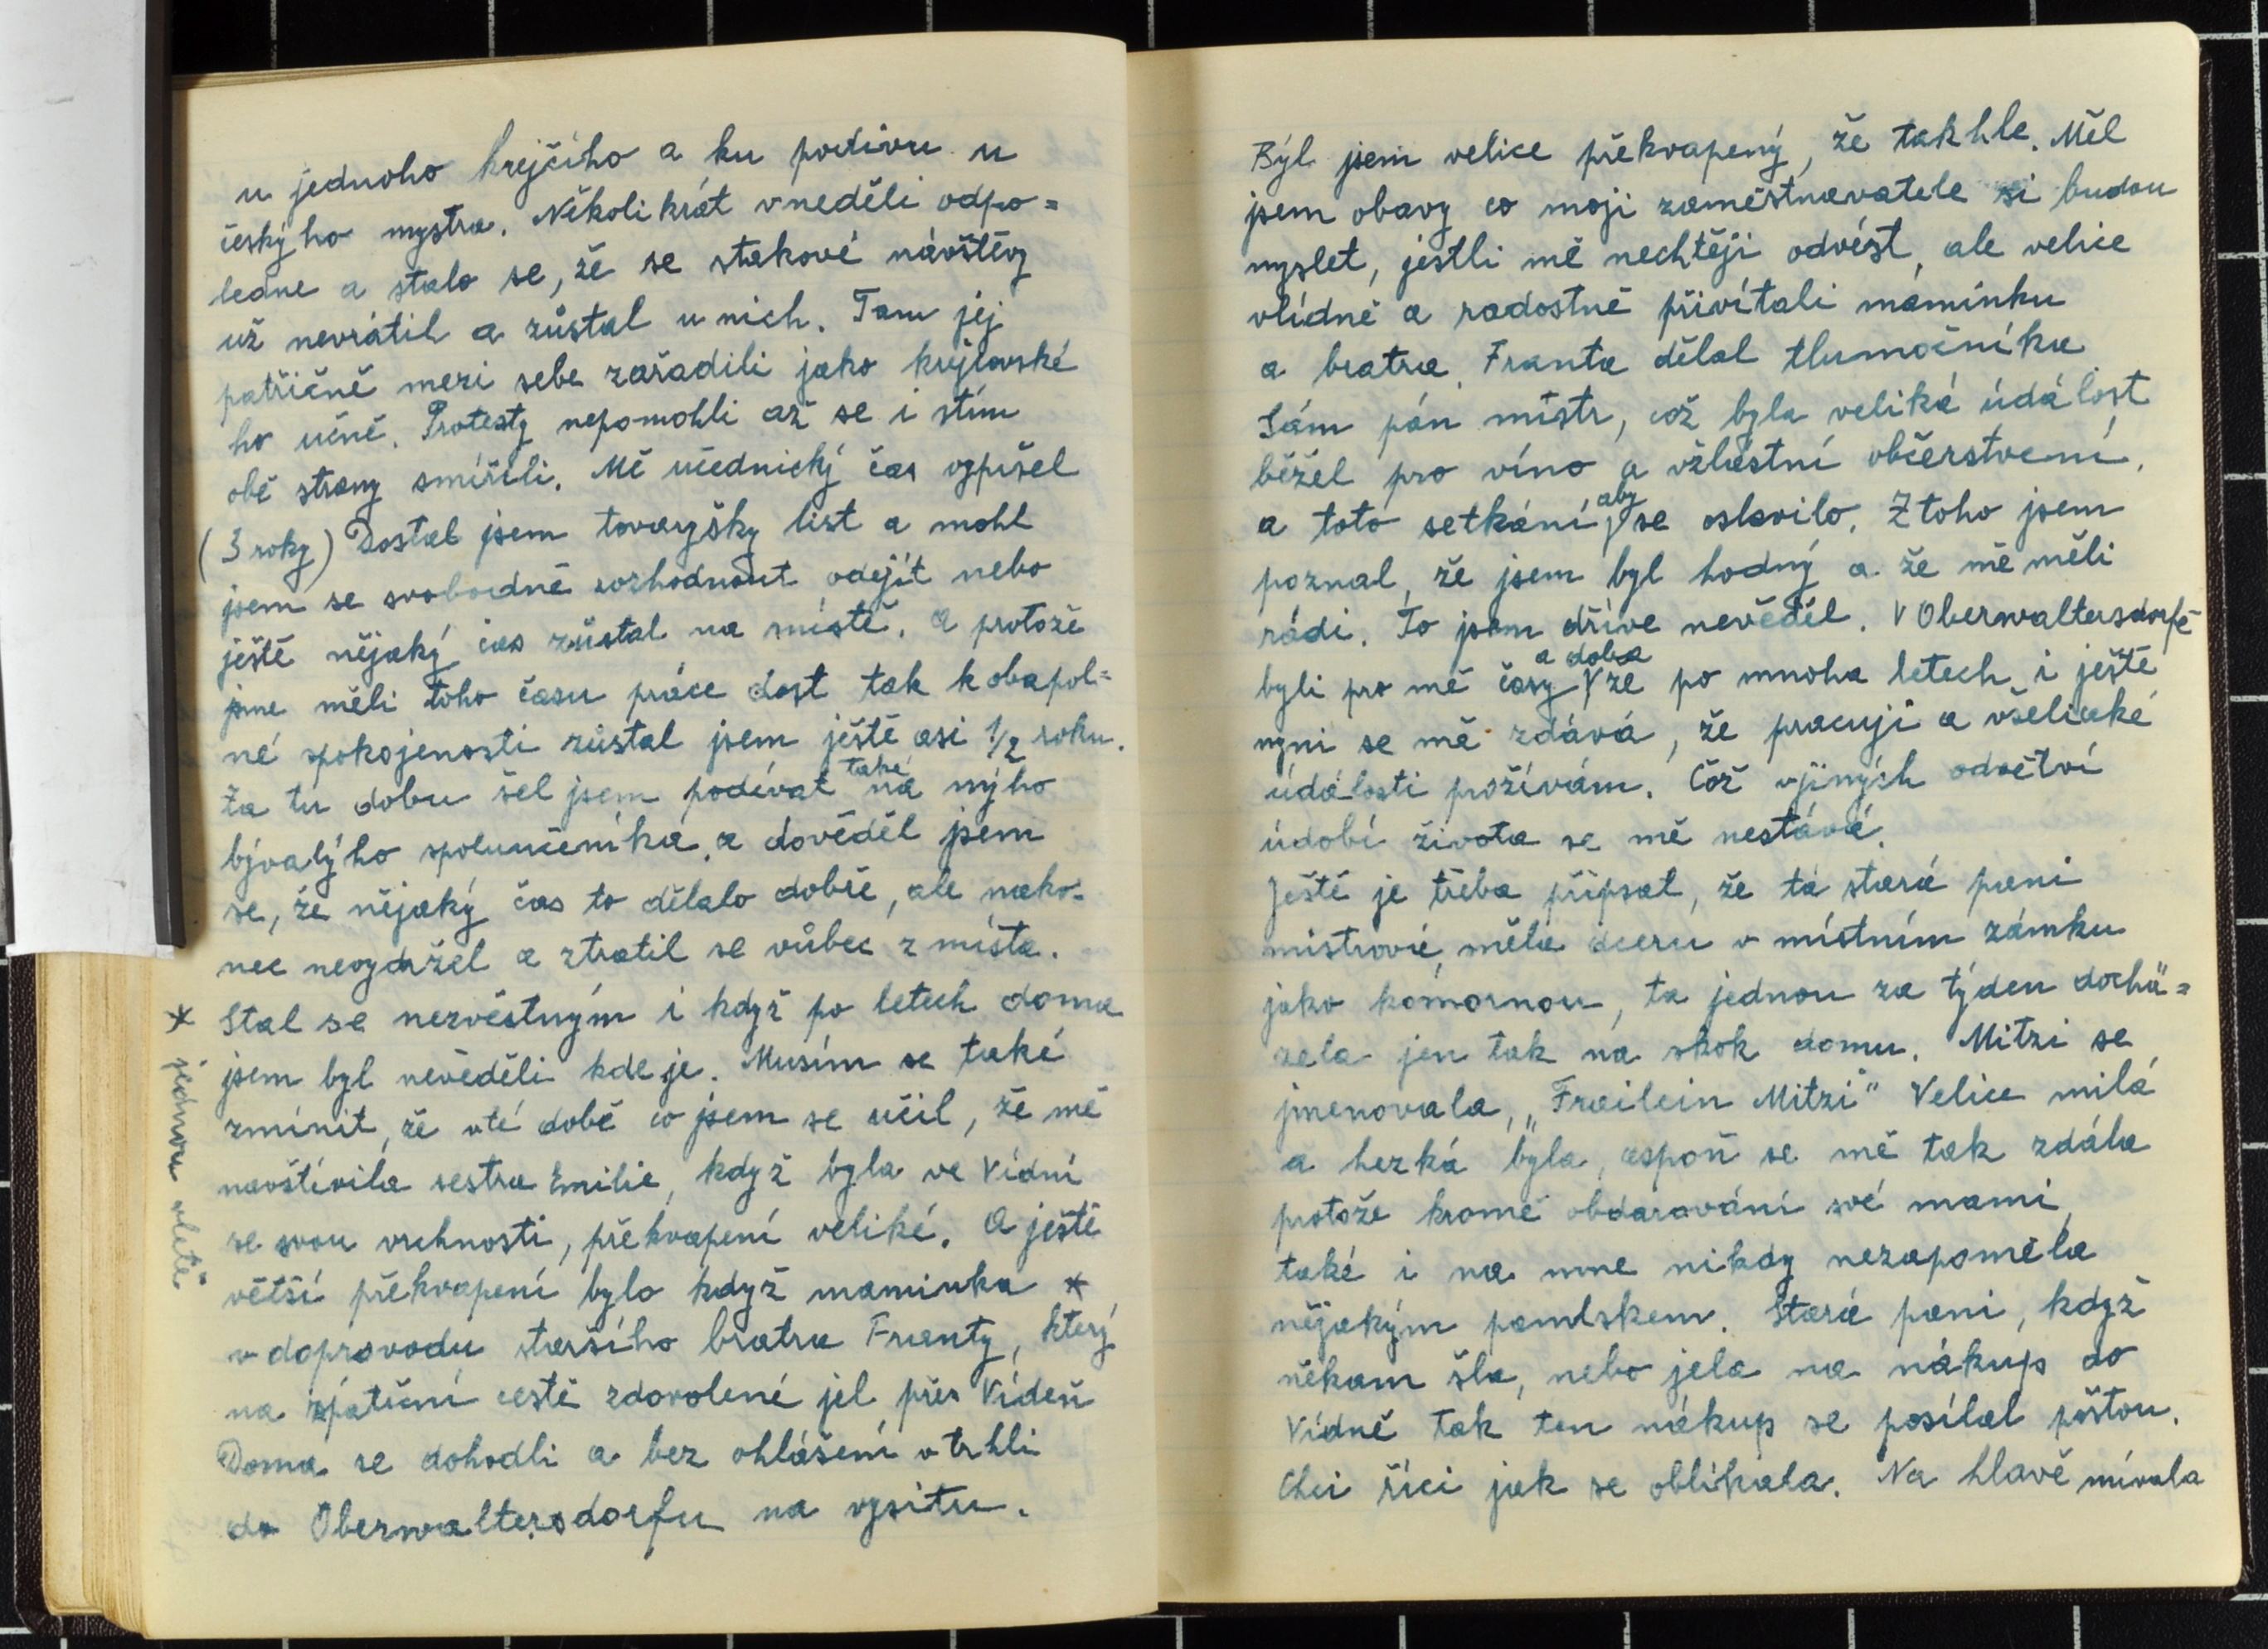 u jednoho krejčího a ku podivu u
českýho mystra. Několikrát v neděli odpo=
ledne a stalo se, že se stakové návštěvy
už nevrátil a zůstal u nich. Tam jej
patřičně mezi sebe zařadili jako krejčovské
ho učně. Protesty nepomohli až se i stím
obě strany smířili. Mě učednický čas vypršel
(3 roky) Dostal jsem tovaryšky list a mohl
jsem se svobodně rozhodnout odejít nebo
ještě nějaký čas zůstal na místě. A protože
jsme měli toho času práce dost tak k obapol=
né spokojenosti zůstal jsem ještě asi 1/2 roku.
Za tu dobu šel jsem podívat také na mýho
bývalýho spoluučeníka, a dověděl jsem
se, že nějaký čas to dělalo dobře, ale nako-
nec nevydržel a ztratil se vůbec z místa.
Stal se nezvěstným i když po letech doma
jsem byl nevěděli kde je. Musím se také
zmínit, že vté době co jsem se učil, že mě
navštívila sestra Emilie, když byla ve Vídní
se svou vrchnosti, překvapení veliké. A ještě
větší překvapení bylo když maminka *
v doprovodu staršího bratra Franty, který
na zpáteční cestě zdovolené jel přes Vídeň
Doma se dohodli a bez ohlášení vtrhli
do Oberwaltersdorfu na vysitu.
* jednou vletě
Byl jsem velice překvapený, že takhle. Měl
jsem obavy co moji zaměstnavatele si budou
myslet, jestli mě nechtěji odvést, ale velice
vlídně a radostně přivítali maminku
a bratra. Franta dělal tlumočníka
Sám pán místr, což byla veliká údálost
běžel pro víno a vžlastní občerstvení,
a toto setkání aby se oslavilo. Z toho jsem
poznal, že jsem byl hodný a že mě měli
rádi. To jsem dříve nevěděl. V Oberwaltersdorfě
byli pro mě časy a doba že po mnoha letech i ještě
nyni se mě zdává, že pracuji a všeliaké
údálosti prožívám. Což vjiných odvětví
údobí života se mě nestává.
Ještě je třeba připsat, že tá stará pani
mistrová, měla dceru v místním zámku
jako komornou, ta jednou za týden dochá=
zela jen tak na skok domu. Mitzi se
jmenovala, „Frailein Mitzi" Velice milá
a hezká byla, aspoň se mě tak zdála
protože kromě obdarování své mami,
také i na mne nikdy nezapoměla
nějakým pamlskem. Stará pani, když
někam šla, nebo jela na nákup do
Vídně tak ten nákup se posílal poštou.
Chci říci jak se oblíkala. Na hlavě mívala